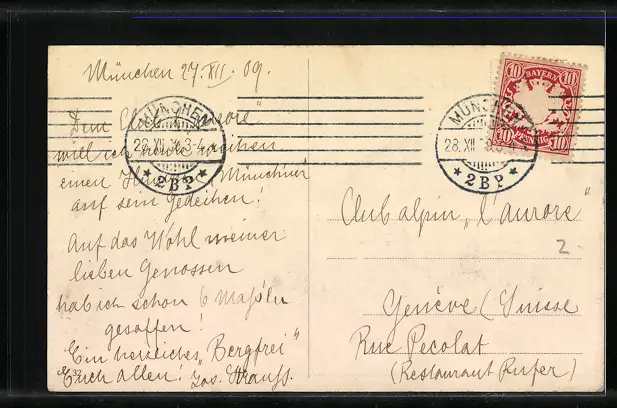 München 27.XII.09.
Dem Club "l'aurore"
will ich heute weihen
einen Münchner
auf sein Gedeihen!
Auf das Wohl meiner
lieben Genossen
hab ich schon 6 Maß'ln
gesoffen!
Ein herzliches "Bergfrei"
Euch allen! Jos. Strauss.
32
MÜNCHEN
28.XII. 3-4
* 2BP *
MÜNCHEN
28.XII.
* 2BP *
10 BAYERN 10
10 PFENNIG 10
Club alpin „l'aurore"
2-
Genève (Suisse
Rue Pecolat
(Restaurant Rufer)